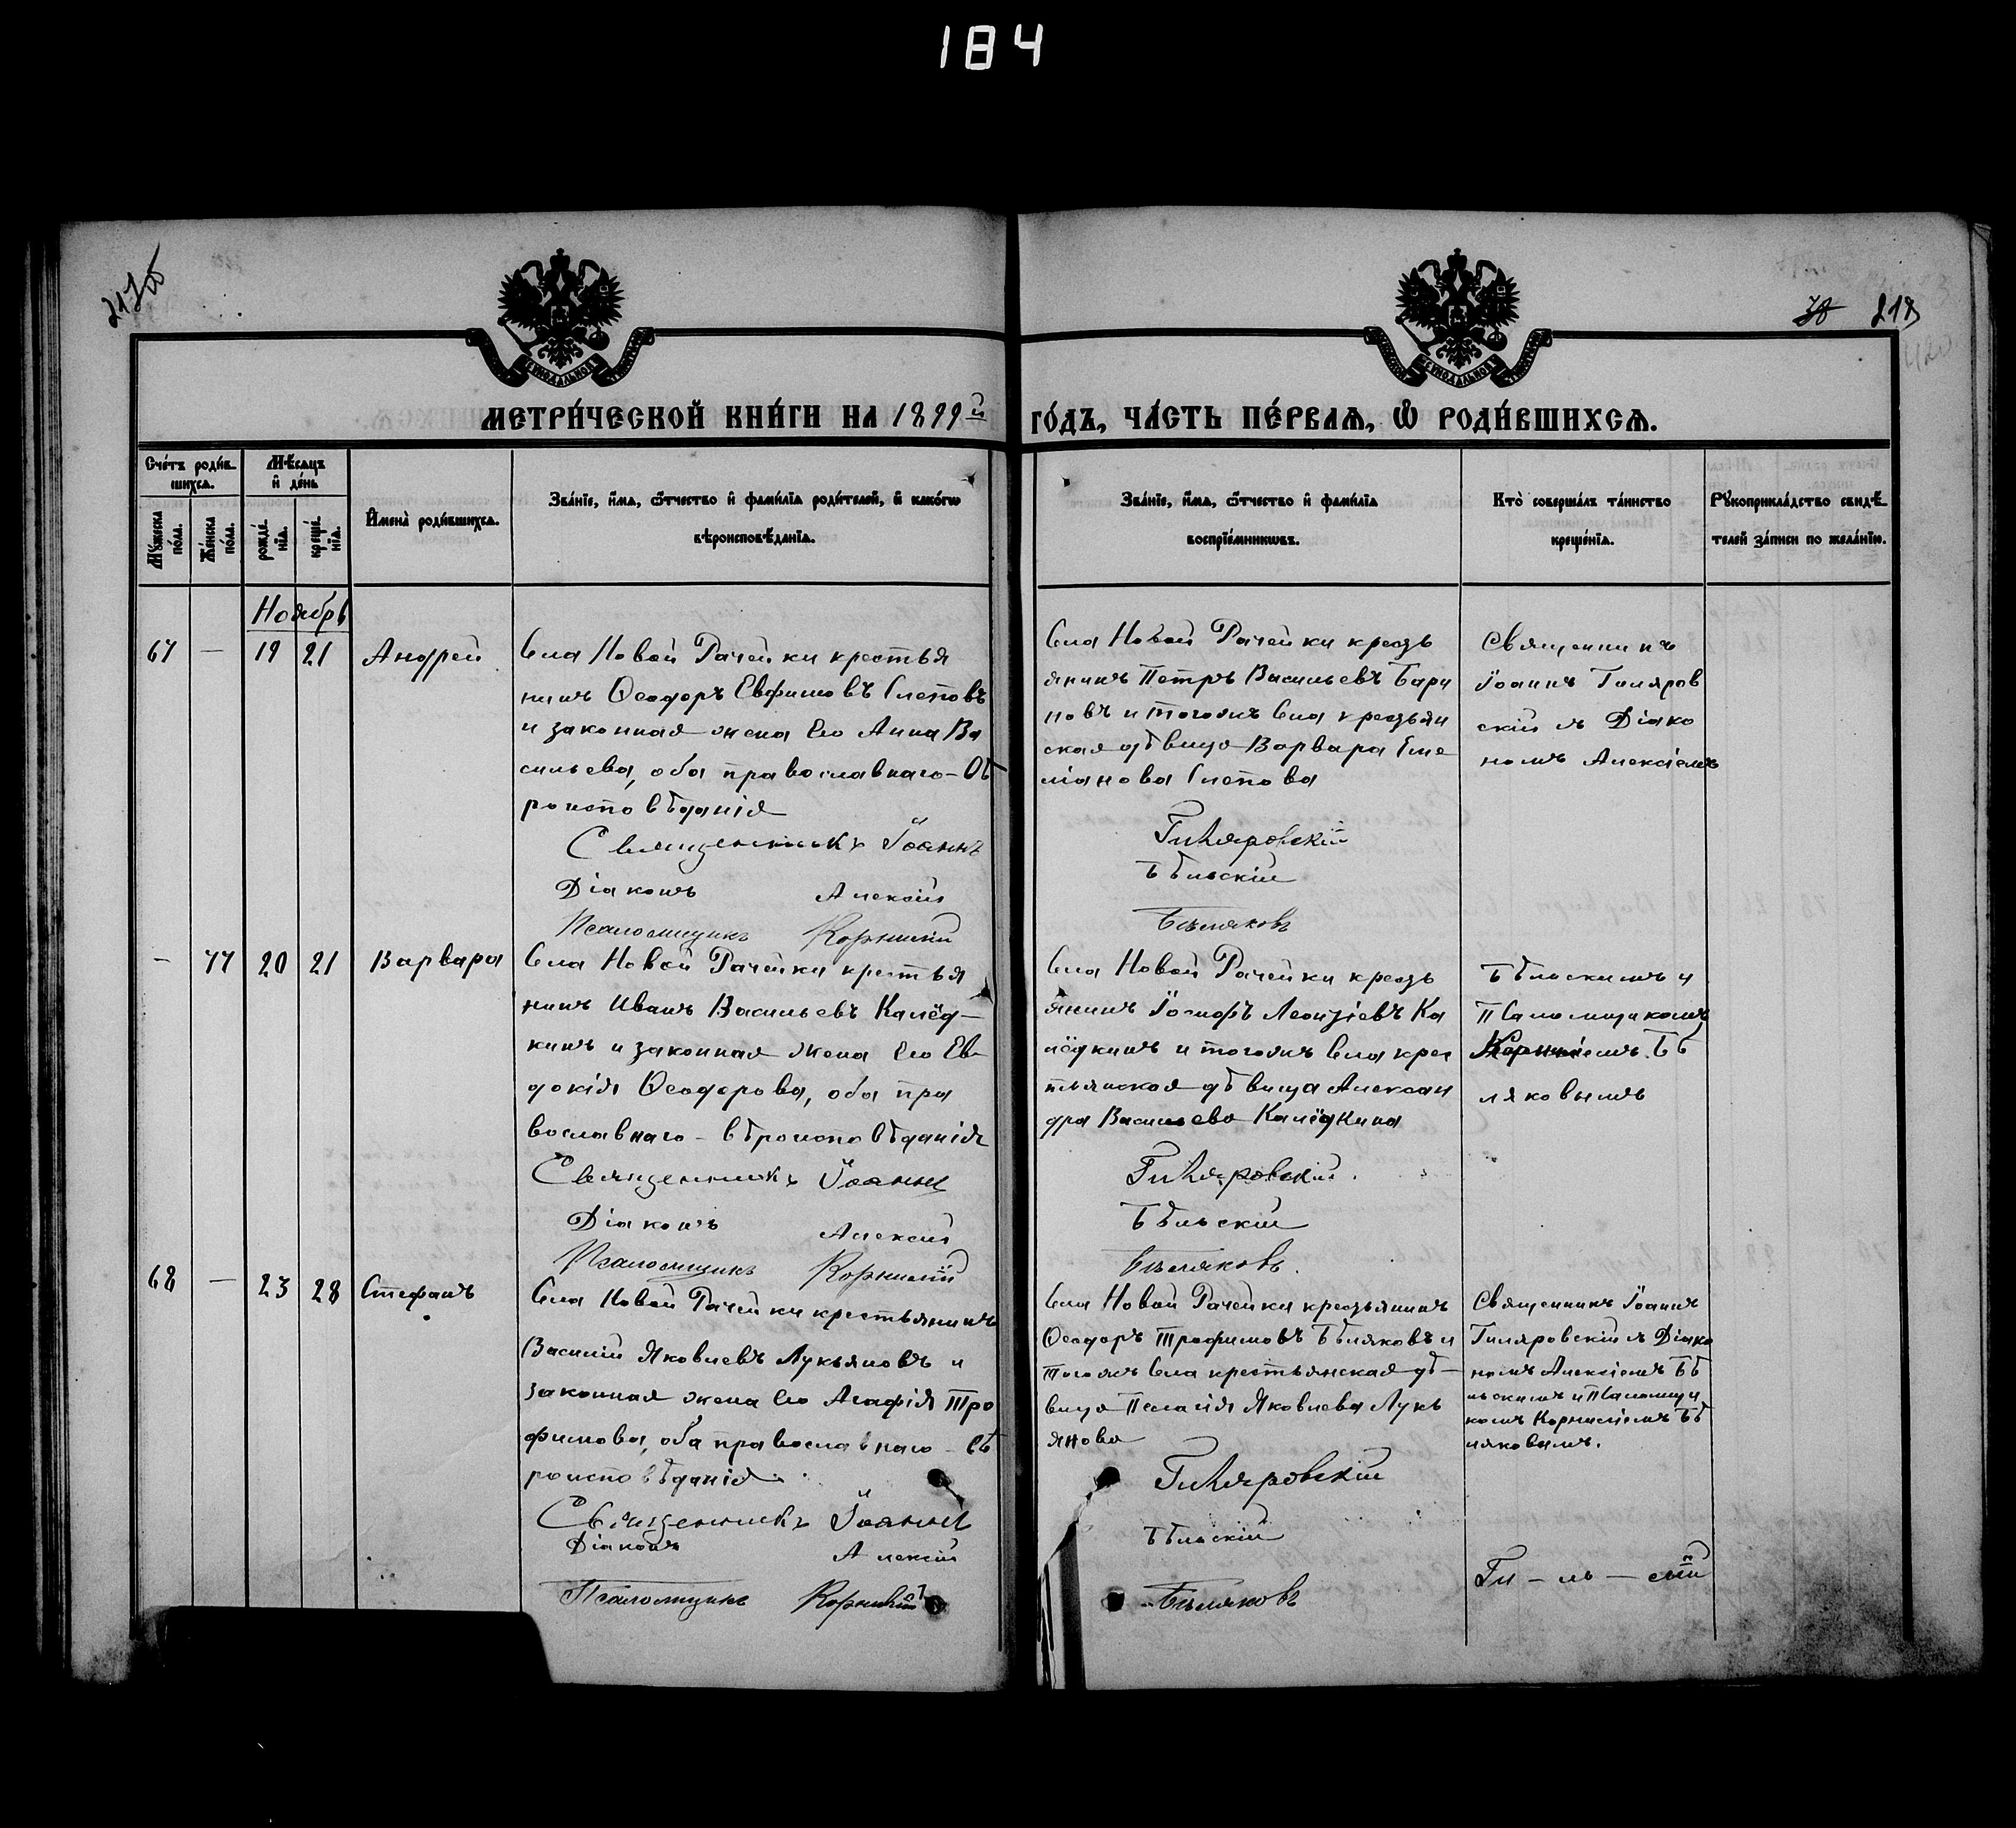 184
217об
38 218
МЕТРИ́ЧЕСКОЙ КНИ́ГИ НА 1899й
ГО́ДЪ, ЧА́СТЬ ПЕ́РВАѦ, Ѡ РОДИ́ВШИХСѦ.
Сче́тъ роди́в-
шихсѧ.
Мѣ́сѧцъ
и де́нь
Мꙋ́жеска по́ла.
Же́нска по́ла.
рожде́нїѧ.
креще́нїѧ.
И҆мена̀ роди́вшихсѧ.
Зва́нїе, и҆́мѧ, ѻ҆́тчество и҆ фами́лїѧ роди́телей, и҆ како́гѡ
вѣроисповѣ́данїѧ.
Зва́нїе, и҆́мѧ, ѻ҆́тчество и҆ фами́лїѧ
воспрїе́мникѡвъ.
Кто̀ соверша́лъ та́инство
креще́нїѧ.
Рꙋкоприкла́дство свидѣ́-
телей за́писи по жела́нїю.
Ноябрь
67 — 19 21 Андрей
Села Новой Рачейки крестья
нинъ Ѳеодоръ Евфимовъ Слеповъ
и законная жена его Анна Ва
сильева, оба православнаго вѣ
роисповѣданія
Священникъ Іоаннъ
Діаконъ Алексій
Псаломщикъ Корнилій
Села Новой Рачейки кресть
янинъ Петръ Васильевъ Бари
новъ и тогожъ села крестьян
ская дѣвица Варвара Еме
ліанова Слепова
Гиляровскій
Бѣльскій
Бѣляковъ
Священникъ
Іоаннъ Гиляров
скій съ Діако
номъ Алексіемъ
— 77 20 21 Варвара
Села Новой Рачейки крестья
нинъ Иванъ Васильевъ Калёд-
кинъ и законная жена его Ев-
докія Ѳеодорова, оба пра
вославнаго вѣроисповѣданія
Священникъ Іоаннъ
Діаконъ Алексій
Псаломщикъ Корнилій
Села Новой Рачейки кресть
янинъ Іосифъ Леонтіевъ Ка
лёдкинъ и тогожъ села крес
тьянская дѣвица Алексан
дра Васильева Калёдкина
Гиляровскій
Бѣльскій
Бѣляковъ
Бѣльскимъ и
Псаломщикомъ
Корниліемъ Бѣ
ляковымъ
68 — 23 28 Стефанъ
Села Новой Рачейки крестьянинъ
Василій Яковлевъ Лукьяновъ и
законная жена его Агафія Тро
фимова, оба православнаго вѣ
роисповѣданія
Священникъ Іоаннъ
Діаконъ Алексій
Псаломщикъ Корнилій
Села Новой Рачейки крестьянинъ
Ѳеодоръ Трофимовъ Бѣляковъ и
тогожъ села крестьянская дѣ-
вица Пелагія Яковлева Лукь
янова
Гиляровскій
Бѣльскій
Бѣляковъ
Священникъ Іоаннъ
Гиляровскій съ Діако
номъ Алексіемъ Бѣ
льскимъ и Псаломщи
комъ Корниліемъ Бѣ
ляковымъ.